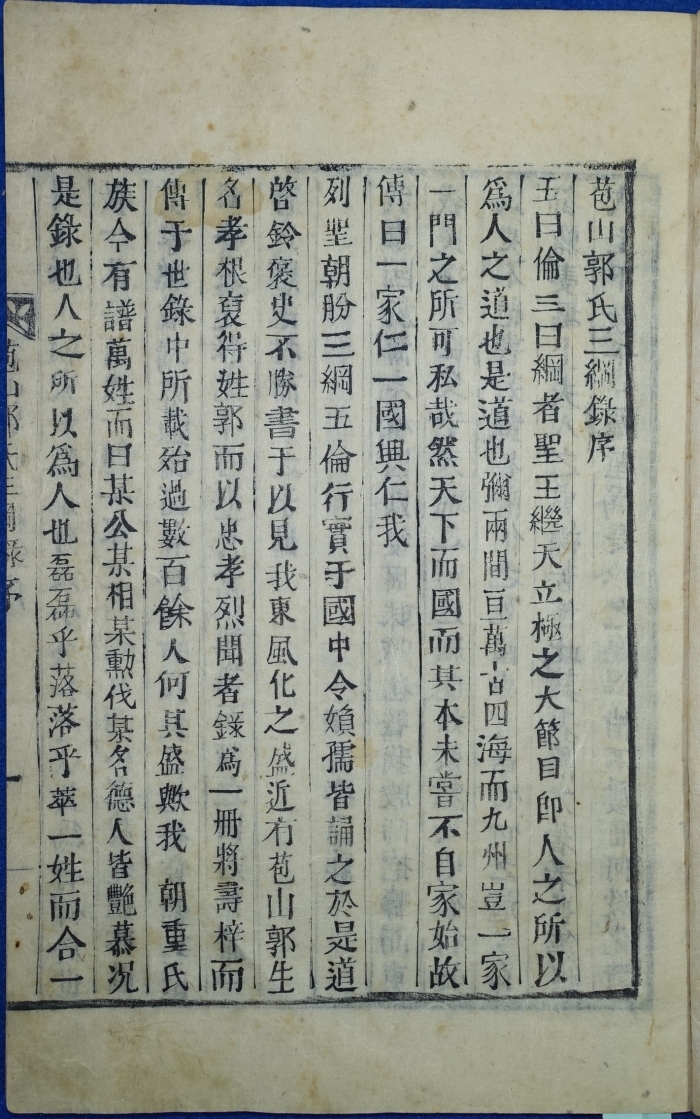 苞山郭氏三綱錄序
五曰倫三曰綱者聖王繼天立極之大節目卽人之所以
爲人之道也是道也彌兩間亘萬古四海而九州豈一家
一門之所可私哉然天下而國而其本未嘗不自家始故
傳曰一家仁一國興仁我
列聖朝肦三綱五倫行實于國中令婦孺皆誦之於是道
啓鈴褒史不勝書于以見我東風化之盛近有苞山郭生
名孝根裒得姓郭而以忠孝烈聞者錄爲一冊將壽梓而
傳于世錄中所載殆過數百餘人何其盛歟我 朝重氏
族今有譜萬姓而曰某公某相某勳伐某名德人皆艷慕况
是錄也人之所以爲人也磊磊乎落落乎萃一姓而合一
苞山郭氏三綱錄序 一